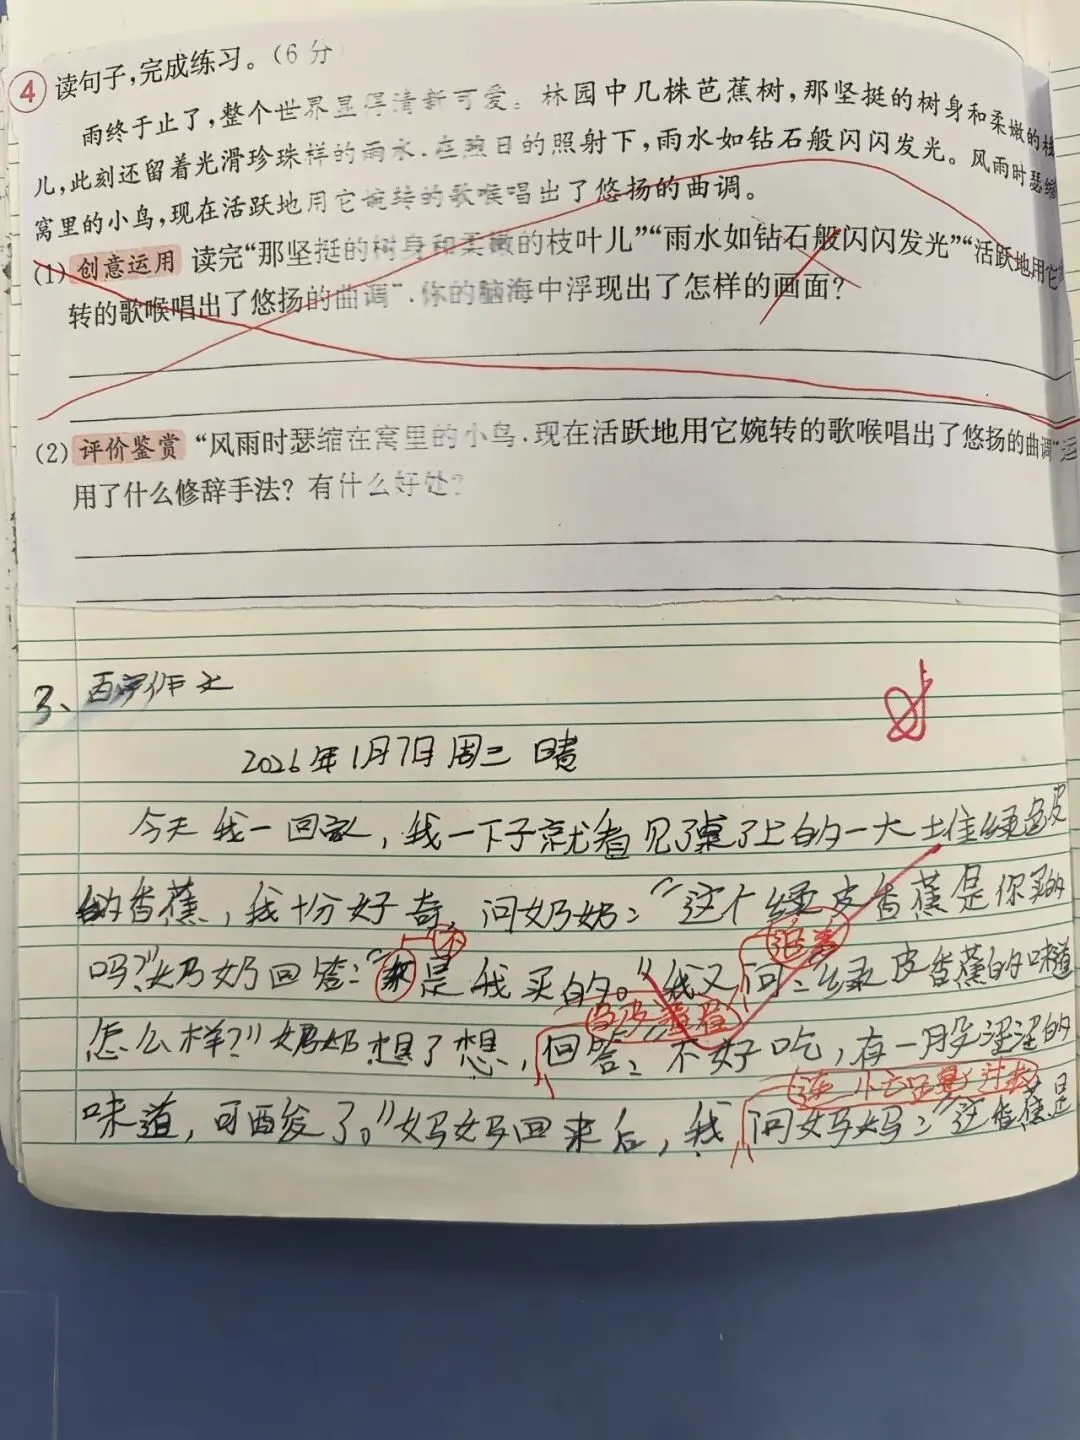 4 读句子,完成练习。(6分)
雨终于止了,整个世界显得清新可爱。林园中几株芭蕉树,那坚挺的树身和柔嫩的枝
儿,此刻还留着光滑珍珠样的雨水.在煦日的照射下,雨水如钻石般闪闪发光。风雨时瑟缩
窝里的小鸟,现在活跃地用它婉转的歌喉唱出了悠扬的曲调。
(1) 创意运用 读完“那坚挺的树身和柔嫩的枝叶儿”“雨水如钻石般闪闪发光”“活跃地用它
转的歌喉唱出了悠扬的曲调”.你的脑海中浮现出了怎样的画面?
(2) 评价鉴赏 “风雨时瑟缩在窝里的小鸟.现在活跃地用它婉转的歌喉唱出了悠扬的曲调”运
用了什么修辞手法? 有什么好处?
3、百字作文
2026年1月7日 周三 晴
今天我一回家,我一下子就看见了桌子上的一大堆绿色皮
的香蕉,我十分好奇,问奶奶:“这个绿皮香蕉是你买的
吗?”奶奶回答:“是我买的。”我又问:绿皮香蕉的味道
不
追着
怎么样?”奶奶想了想,回答:“不好吃,有一股涩涩的
皱眉
味道,可酉发了。”妈妈回来后,我问妈妈:“这香蕉是